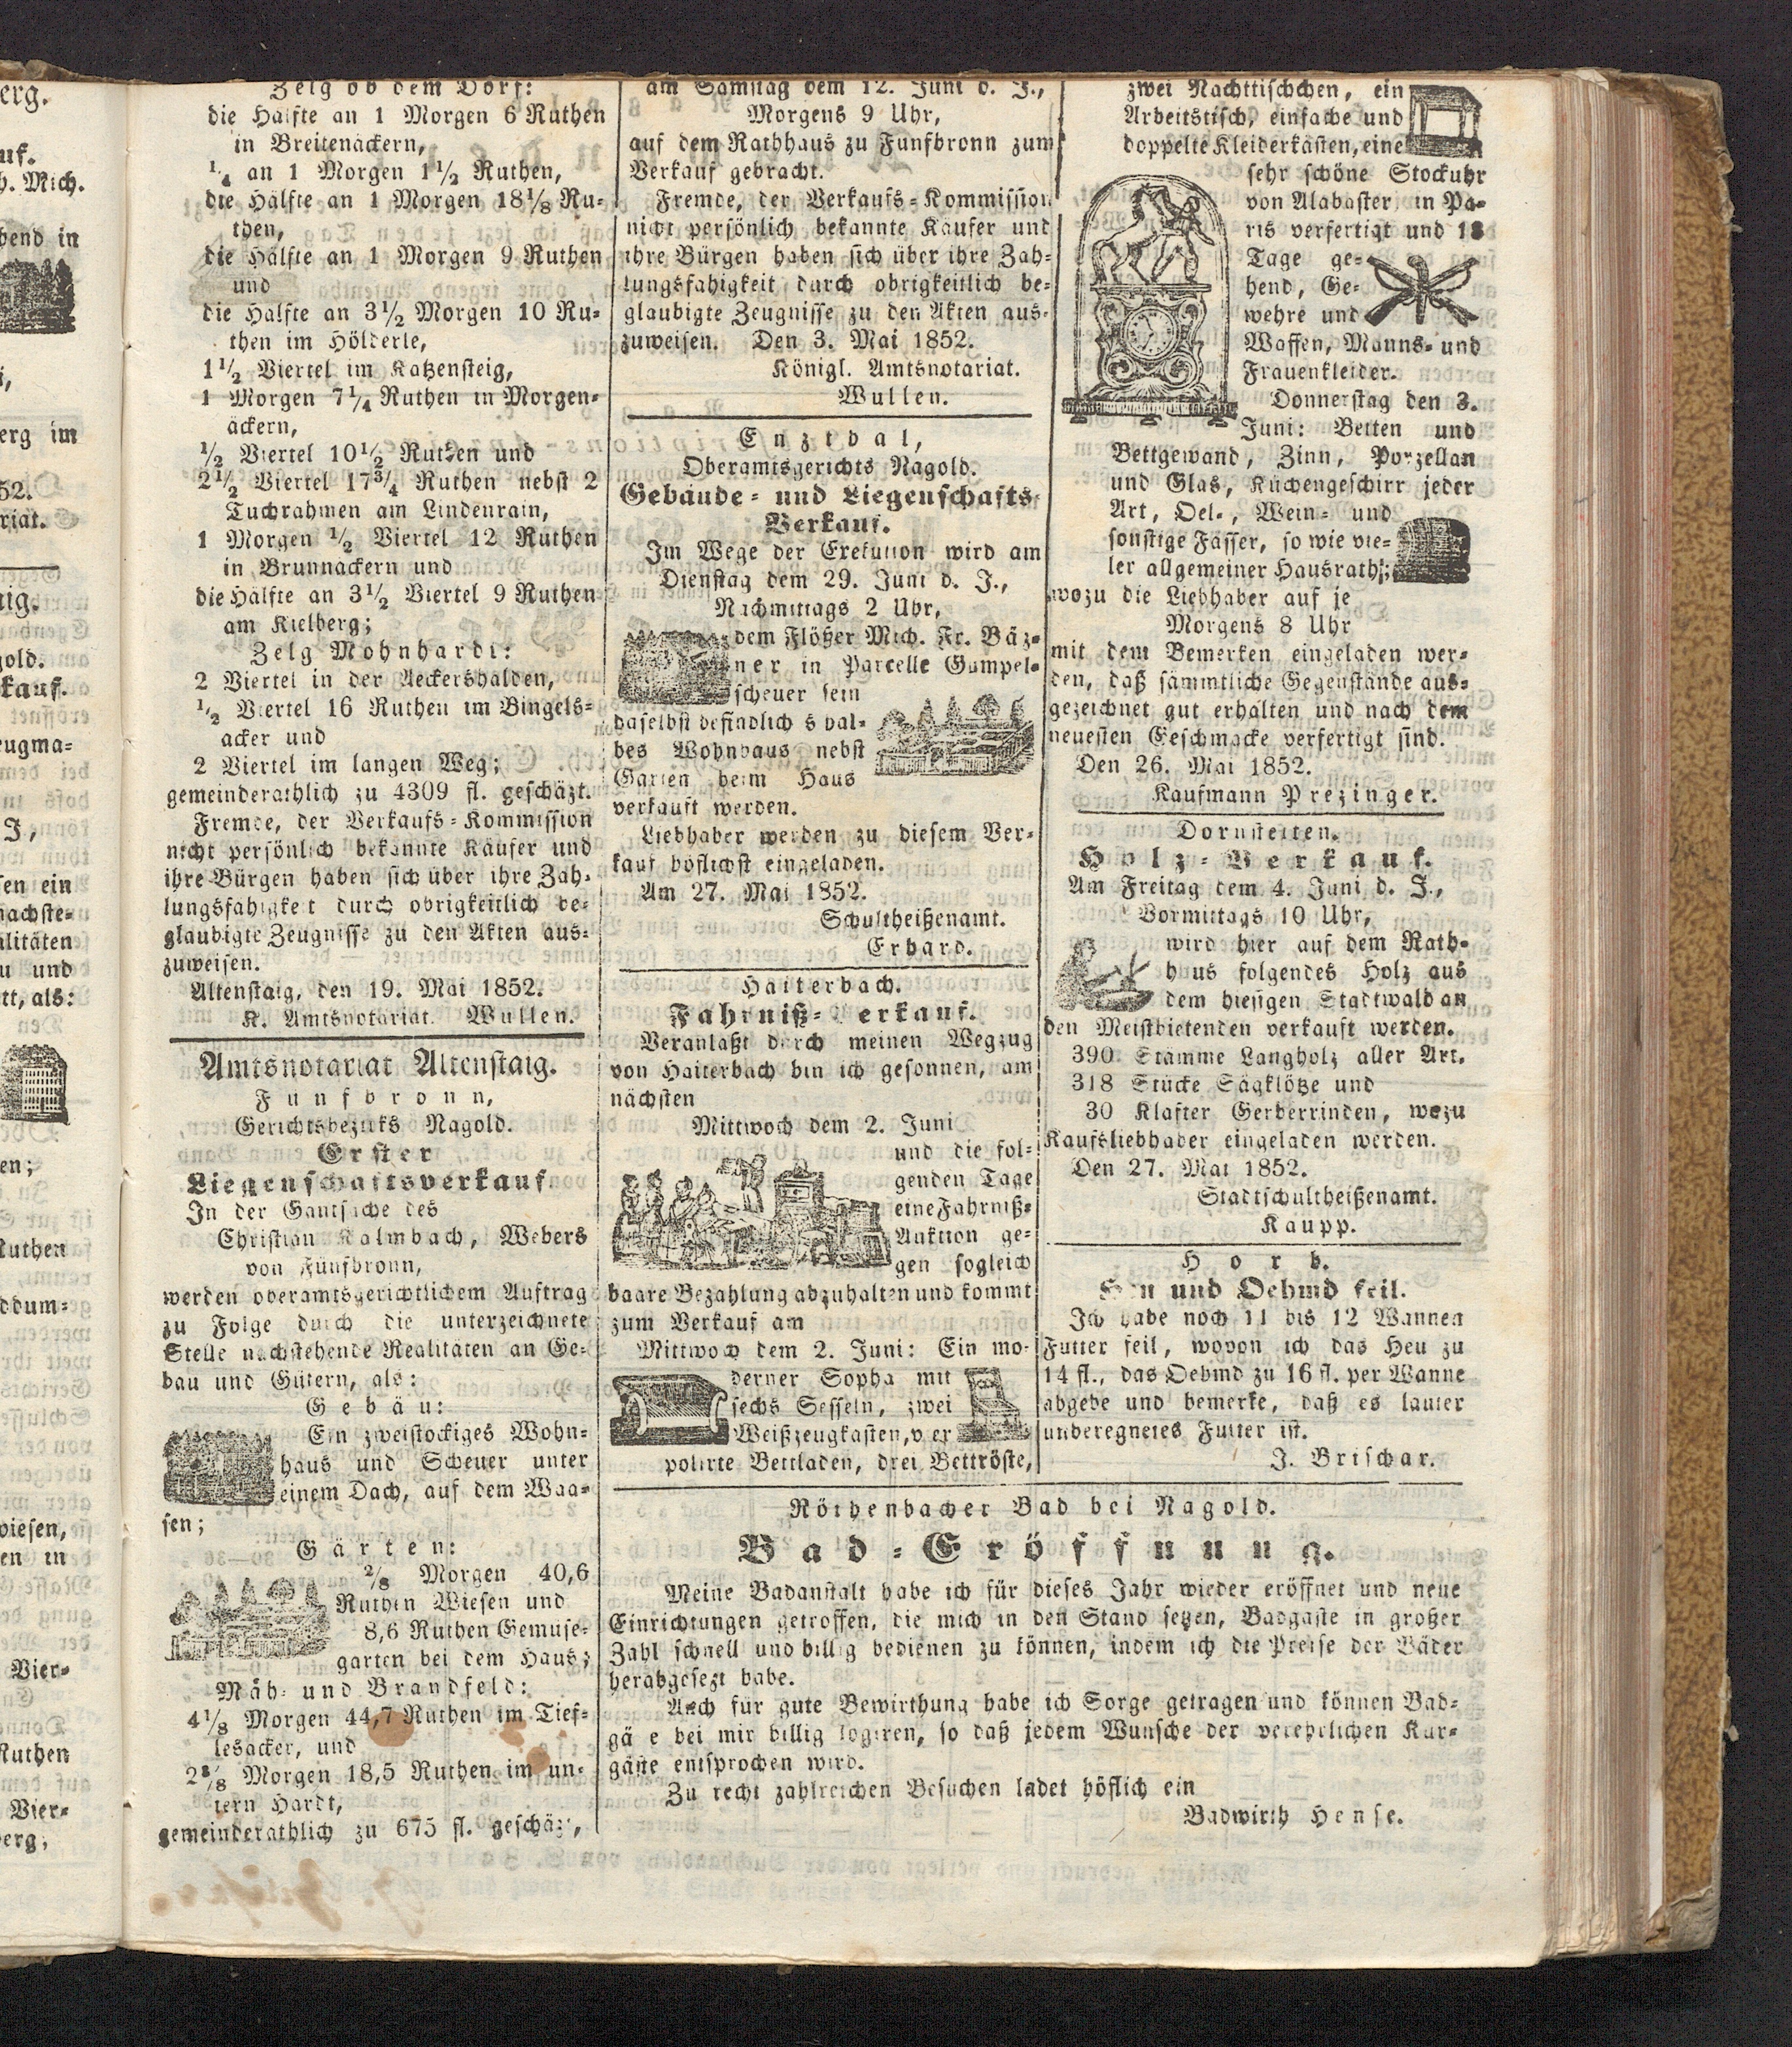 erg.
uf.
h. Mich.
bend in
i,
erg im
52.
riat.
ig.
gold.
kauf.
eugma-
J,
sen ein
nachste-
alitäten
u und
tt, als:
en;
Ruthen
ddum-
wiesen,
en in
Vier-
Ruthen
Vier-
berg;
Zelg ob dem Dorf:
die Hälfte an 1 Morgen 6 Ruthen
in Breitenäckern,
1/4 an 1 Morgen 1 1/2 Ruthen,
die Hälfte an 1 Morgen 18 1/8 Ru-
then,
die Hälfte an 1 Morgen 9 Ruthen
und
die Hälfte an 3 1/2 Morgen 10 Ru-
then im Hölderle,
1 1/2 Viertel im Katzensteig,
1 Morgen 7 1/4 Ruthen in Morgen-
äckern,
1/2 Viertel 10 1/2 Ruthen und
2 1/2 Viertel 17 3/4 Ruthen nebst 2
Tuchrahmen am Lindenrain,
1 Morgen 1/2 Viertel 12 Ruthen
in Brunnäckern und
die Hälfte an 3 1/2 Viertel 9 Ruthen
am Kielberg;
Zelg Mohnhardt:
2 Viertel in der Aeckershalden,
1/2 Viertel 16 Ruthen im Bingels-
acker und
2 Viertel im langen Weg;
gemeinderäthlich zu 4309 fl. geschäzt.
Fremde, der Verkaufs-Kommission
nicht persönlich bekannte Käufer und
ihre Bürgen haben sich über ihre Zah-
lungsfähigkeit durch obrigkeitlich be-
glaubigte Zeugnisse zu den Akten aus-
zuweisen.
Altenstaig, den 19. Mai 1852.
K. Amtsnotariat. Wullen.
Amtsnotariat Altenstaig.
Fünfbronn,
Gerichtsbezirks Nagold.
Erster
Liegenschaftsverkauf.
In der Gantsache des
Christian Kalmbach, Webers
von Fünfbronn,
werden oberamtsgerichtlichem Auftrag
zu Folge durch die unterzeichnete
Stelle nachstehende Realitäten an Ge-
bäu und Gütern, als:
Gebäu:
Ein zweistockiges Wohn-
haus und Scheuer unter
einem Dach, auf dem Waa-
sen;
Gärten:
2/8 Morgen 40,6
Ruthen Wiesen und
8,6 Ruthen Gemüse-
garten bei dem Haus;
Mäh- und Brandfeld:
4 1/8 Morgen 44,7 Ruthen im Tief-
lesacker, und
2 /8 Morgen 18,5 Ruthen im un-
tern Hardt,
gemeinderäthlich zu 675 fl. geschäzt,
am Samstag dem 12. Juni d. J.,
Morgens 9 Uhr,
auf dem Rathhaus zu Fünfbronn zum
Verkauf gebracht.
Fremde, der Verkaufs-Kommission
nicht persönlich bekannte Käufer und
ihre Bürgen haben sich über ihre Zah-
lungsfähigkeit durch obrigkeitlich be-
glaubigte Zeugnisse zu den Akten aus-
zuweisen. Den 3. Mai 1852.
Königl. Amtsnotariat.
Wullen.
Enzthal,
Oberamtsgerichts Nagold.
Gebäude- und Liegenschafts-
Verkauf.
Im Wege der Exekution wird am
Dienstag dem 29. Juni d. J.,
Nachmittags 2 Uhr,
dem Flößer Mich. Fr. Bäz-
ner in Parcelle Gompel-
scheuer sein
daselbst befindlich s hal-
bes Wohnhaus nebst
Garten beim Haus
verkauft werden.
Liebhaber werden zu diesem Ver-
kauf höflichst eingeladen.
Am 27. Mai 1852.
Schultheißenamt.
Erhard.
Haiterbach.
Fahrniß-Verkauf.
Veranlaßt durch meinen Wegzug
von Haiterbach bin ich gesonnen, am
nächsten
Mittwoch dem 2. Juni
und die fol-
genden Tage
eine Fahrniß-
Auktion ge-
gen sogleich
baare Bezahlung abzuhalten und kommt
zum Verkauf am
Mittwoch dem 2. Juni: Ein mo-
derner Sopha mit
sechs Sesseln, zwei
Weißzeugkasten, vier
polirte Bettladen, drei Bettröste,
zwei Nachttischchen, ein
Arbeitstisch, einfache und
doppelte Kleiderkästen, eine
sehr schöne Stockuhr
von Alabaster, in Pa-
ris verfertigt und 18
Tage ge-
hend, Ge-
wehre und
Waffen, Manns- und
Frauenkleider.
Donnerstag den 3.
Juni: Betten und
Bettgewand, Zinn, Porzellan
und Glas, Küchengeschirr jeder
Art, Oel-, Wein- und
sonstige Fässer, so wie vie-
ler allgemeiner Hausrath;
wozu die Liebhaber auf je
Morgens 8 Uhr
mit dem Bemerken eingeladen wer-
den, daß sämmtliche Gegenstände aus-
gezeichnet gut erhalten und nach dem
neuesten Geschmacke verfertigt sind.
Den 26. Mai 1852.
Kaufmann Prezinger.
Dornstetten.
Holz-Verkauf.
Am Freitag dem 4. Juni d. J.,
Vormittags 10 Uhr,
wird hier auf dem Rath-
haus folgendes Holz aus
dem hiesigen Stadtwald an
den Meistbietenden verkauft werden.
390 Stämme Langholz aller Art.
318 Stücke Sägklötze und
30 Klafter Gerberrinden, wozu
Kaufsliebhaber eingeladen werden.
Den 27. Mai 1852.
Stadtschultheißenamt.
Kaupp.
Horb.
Heu und Oehmd feil.
Ich habe noch 11 bis 12 Wannen
Futter feil, wovon ich das Heu zu
14 fl., das Oehmd zu 16 fl. per Wanne
abgebe und bemerke, daß es lauter
unberegnetes Futter ist.
J. Brischar.
Röthenbacher Bad bei Nagold.
Bad-Eröffnung.
Meine Badanstalt habe ich für dieses Jahr wieder eröffnet und neue
Einrichtungen getroffen, die mich in den Stand setzen, Badgäste in großer
Zahl schnell und billig bedienen zu können, indem ich die Preise der Bäder
herabgesezt habe.
Auch für gute Bewirthung habe ich Sorge getragen und können Bad-
gä e bei mir billig logiren, so daß jedem Wunsche der verehrlichen Kur-
gäste entsprochen wird.
Zu recht zahlreichen Besuchen ladet höflich ein
Badwirth Hense.